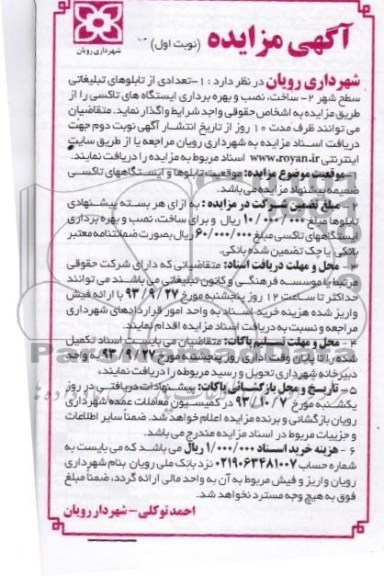 آگهی مزایده (نوبت اول)
شهرداری رویان
شهرداری رویان در نظر دارد : ۱-تعدادی از تابلوهای تبلیغاتی
سطح شهر ۲- ساخت، نصب و بهره برداری ایستگاه های تاکسی را از
طریق مزایده به اشخاص حقوقی واجد شرایط واگذار نماید. متقاضیان
می توانند ظرف مدت ۱۰ روز از تاریخ انتشار آگهی نوبت دوم جهت
دریافت اسناد مزایده به شهرداری رویان مراجعه یا از طریق سایت
اینترنتی www.royan.ir اسناد مربوط به مزایده را دریافت نمایند.
موقعیت موضوع مزایده: موقعیت تابلوها و ایستگاههای تاکسی
ضمیمه پیشنهاد مزایده می باشد.
مبلغ تضمین شرکت در مزایده : به ازای هر بسته پیشنهادی
تابلوها مبلغ ۱۰/۰۰۰/۰۰۰ ریال و برای ساخت، نصب و بهره برداری
ایستگاههای تاکسی مبلغ ۶۰/۰۰۰/۰۰۰ ریال بصورت ضمانتنامه معتبر
بانکی یا چک تضمین شده بانکی.
۳- محل و مهلت دریافت اسناد: متقاضیانی که دارای شرکت حقوقی
مرتبط یا موسسه فرهنگی و کانون تبلیغاتی می باشند می توانند
حداکثر تا ساعت ۱۲ روز پنجشنبه مورخ ۹۳/۹/۲۷ با ارائه فیش
واریز شده هزینه خرید اسناد به واحد امور قراردادهای شهرداری
مراجعه و نسبت به دریافت اسناد مزایده اقدام نمایند.
۴- محل و مهلت تسلیم پاکات: متقاضیان می بایست اسناد تکمیل
شده را تا پایان وقت اداری روز پنجشنبه مورخ ۹۳/۹/۲۷ به واحد
دبیرخانه شهرداری تحویل و رسید مربوطه را دریافت نمایند.
۵- تاریخ و محل بازگشائی پاکات: پیشنهادات دریافتی در روز
یکشنبه مورخ ۹۳/۱۰/۷ در کمیسیون معاملات عمده شهرداری
رویان بازگشائی و برنده مزایده اعلام خواهد شد. ضمناً سایر اطلاعات
و جزییات مربوط در اسناد مزایده مندرج می باشد.
۶ - هزینه خرید اسناد ۱/۰۰۰/۰۰۰ ریال می باشد که می بایست به
شماره حساب ۰۲۱۹۰۶۳۴۸۱۰۰۷ نزد بانک ملی رویان بنام شهرداری
رویان واریز و فیش مربوط به آن به واحد مالی ارائه گردد، ضمناً مبلغ
فوق به هیچ وجه مسترد نخواهد شد.
احمد توکلی - شهردار رویان